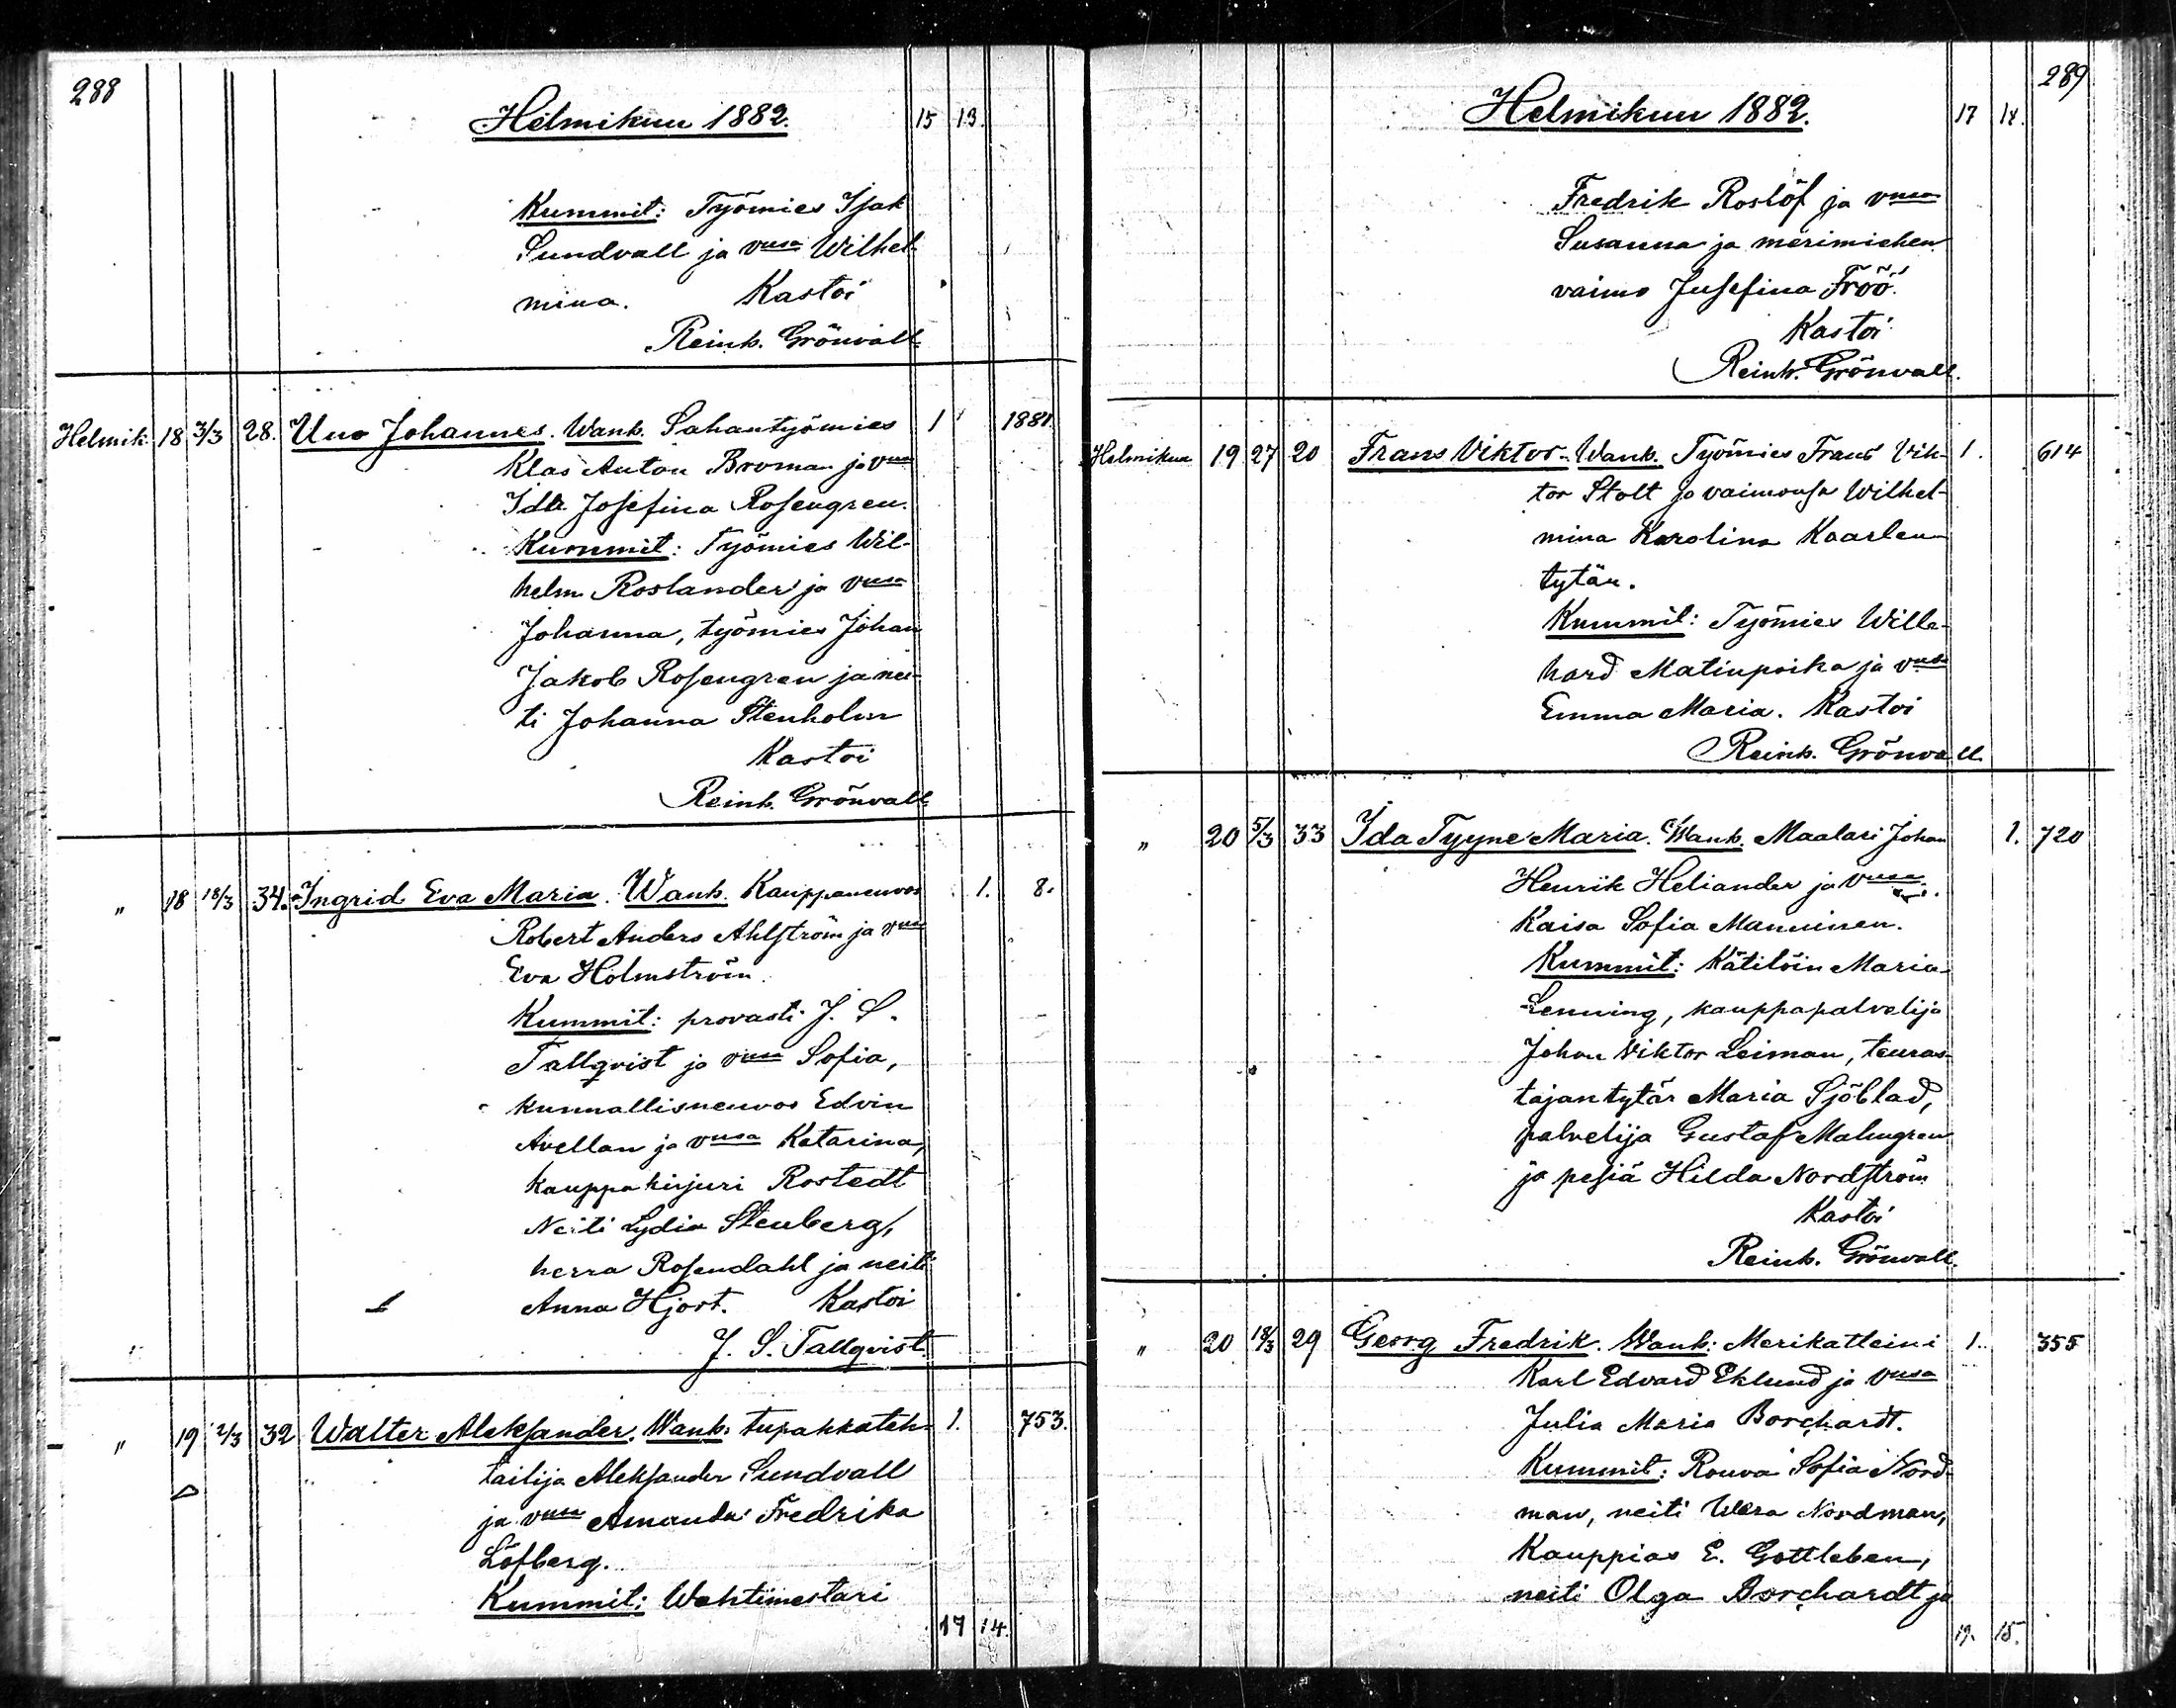 288
Helmikuu 1882. 15 13.
Kummit: Työmies Isak
Sundvall ja vnsa Wilhel-
mina. Kastoi
Reinh. Grönvall
Helmik. 18 3/3 28. Uno Johannes. Wanh. Sahantyömies 1 1881.
Klas Anton Broman ja vnsa
Ida Josefina Rosengren.
Kummit: Työmies Wil-
helm Roslander ja vnsa
Johanna, työmies Johan
Jakob Rosengren ja nei-
ti Johanna Stenholm
Kastoi
Reinh. Grönvall
" 18 18/3 34. Ingrid Eva Maria. Wanh. Kauppaneuvos 1. 8.
Robert Anders Ahlström ja vnsa
Eva Holmström.
Kummit: provasti J. S.
Tallqvist ja vnsa Sofia,
kunnallisneuvos Edvin
Avellan ja vnsa Katarina,
kauppakirjuri Rostedt
Neiti Lydia Stenberg,
herra Rosendahl ja neiti
Anna Hjort. Kastoi
J. S. Tallqvist.
" 19 2/3 32 Walter Aleksander. Wanh. tupakkateh- 1. 753.
tailija Aleksander Sundvall
ja vnsa Amanda Fredrika
Löfberg.
Kummit: Wahtimestari
17 14.
289
Helmikuu 1882. 17 14.
Fredrik Roslöf ja vnsa
Susanna ja merimiehen
vaimo Jusefina Fröö.
Kastoi
Reinh. Grönvall.
Helmikuu 19 27 20 Frans Viktor. Wanh. Työmies Frans Vik- 1. 614
tor Stolt ja vaimonsa Wilhel-
mina Karolina Kaarlen
tytär.
Kummit: Työmies Wille-
hard Matinpoika ja vnsa
Emma Maria. Kastoi
Reinh. Grönvall.
" 20 5/3 33 Ida Tyyne Maria. Wanh. Maalari Johan 1. 720
Henrik Heliander ja vnsa
Kaisa Sofia Manninen.
Kummit: Kätilöin Maria
Lenning, kauppapalvelija
Johan Viktor Leiman, teuras-
tajan tytär Maria Sjöblad,
palvelija Gustaf Malmgren
ja pesiä Hilda Nordström
Kastoi
Reinh. Grönvall.
" 20 18/3 29 Georg Fredrik. Wanh: Merikatteini 1. 355
Karl Edvard Eklund ja vnsa
Julia Maria Borchardt.
Kummit: Rouva Sofia Nord-
man, neiti Wera Nordman,
Kauppias E. Gottleben,
neiti Olga Borchardt ja
19. 15.